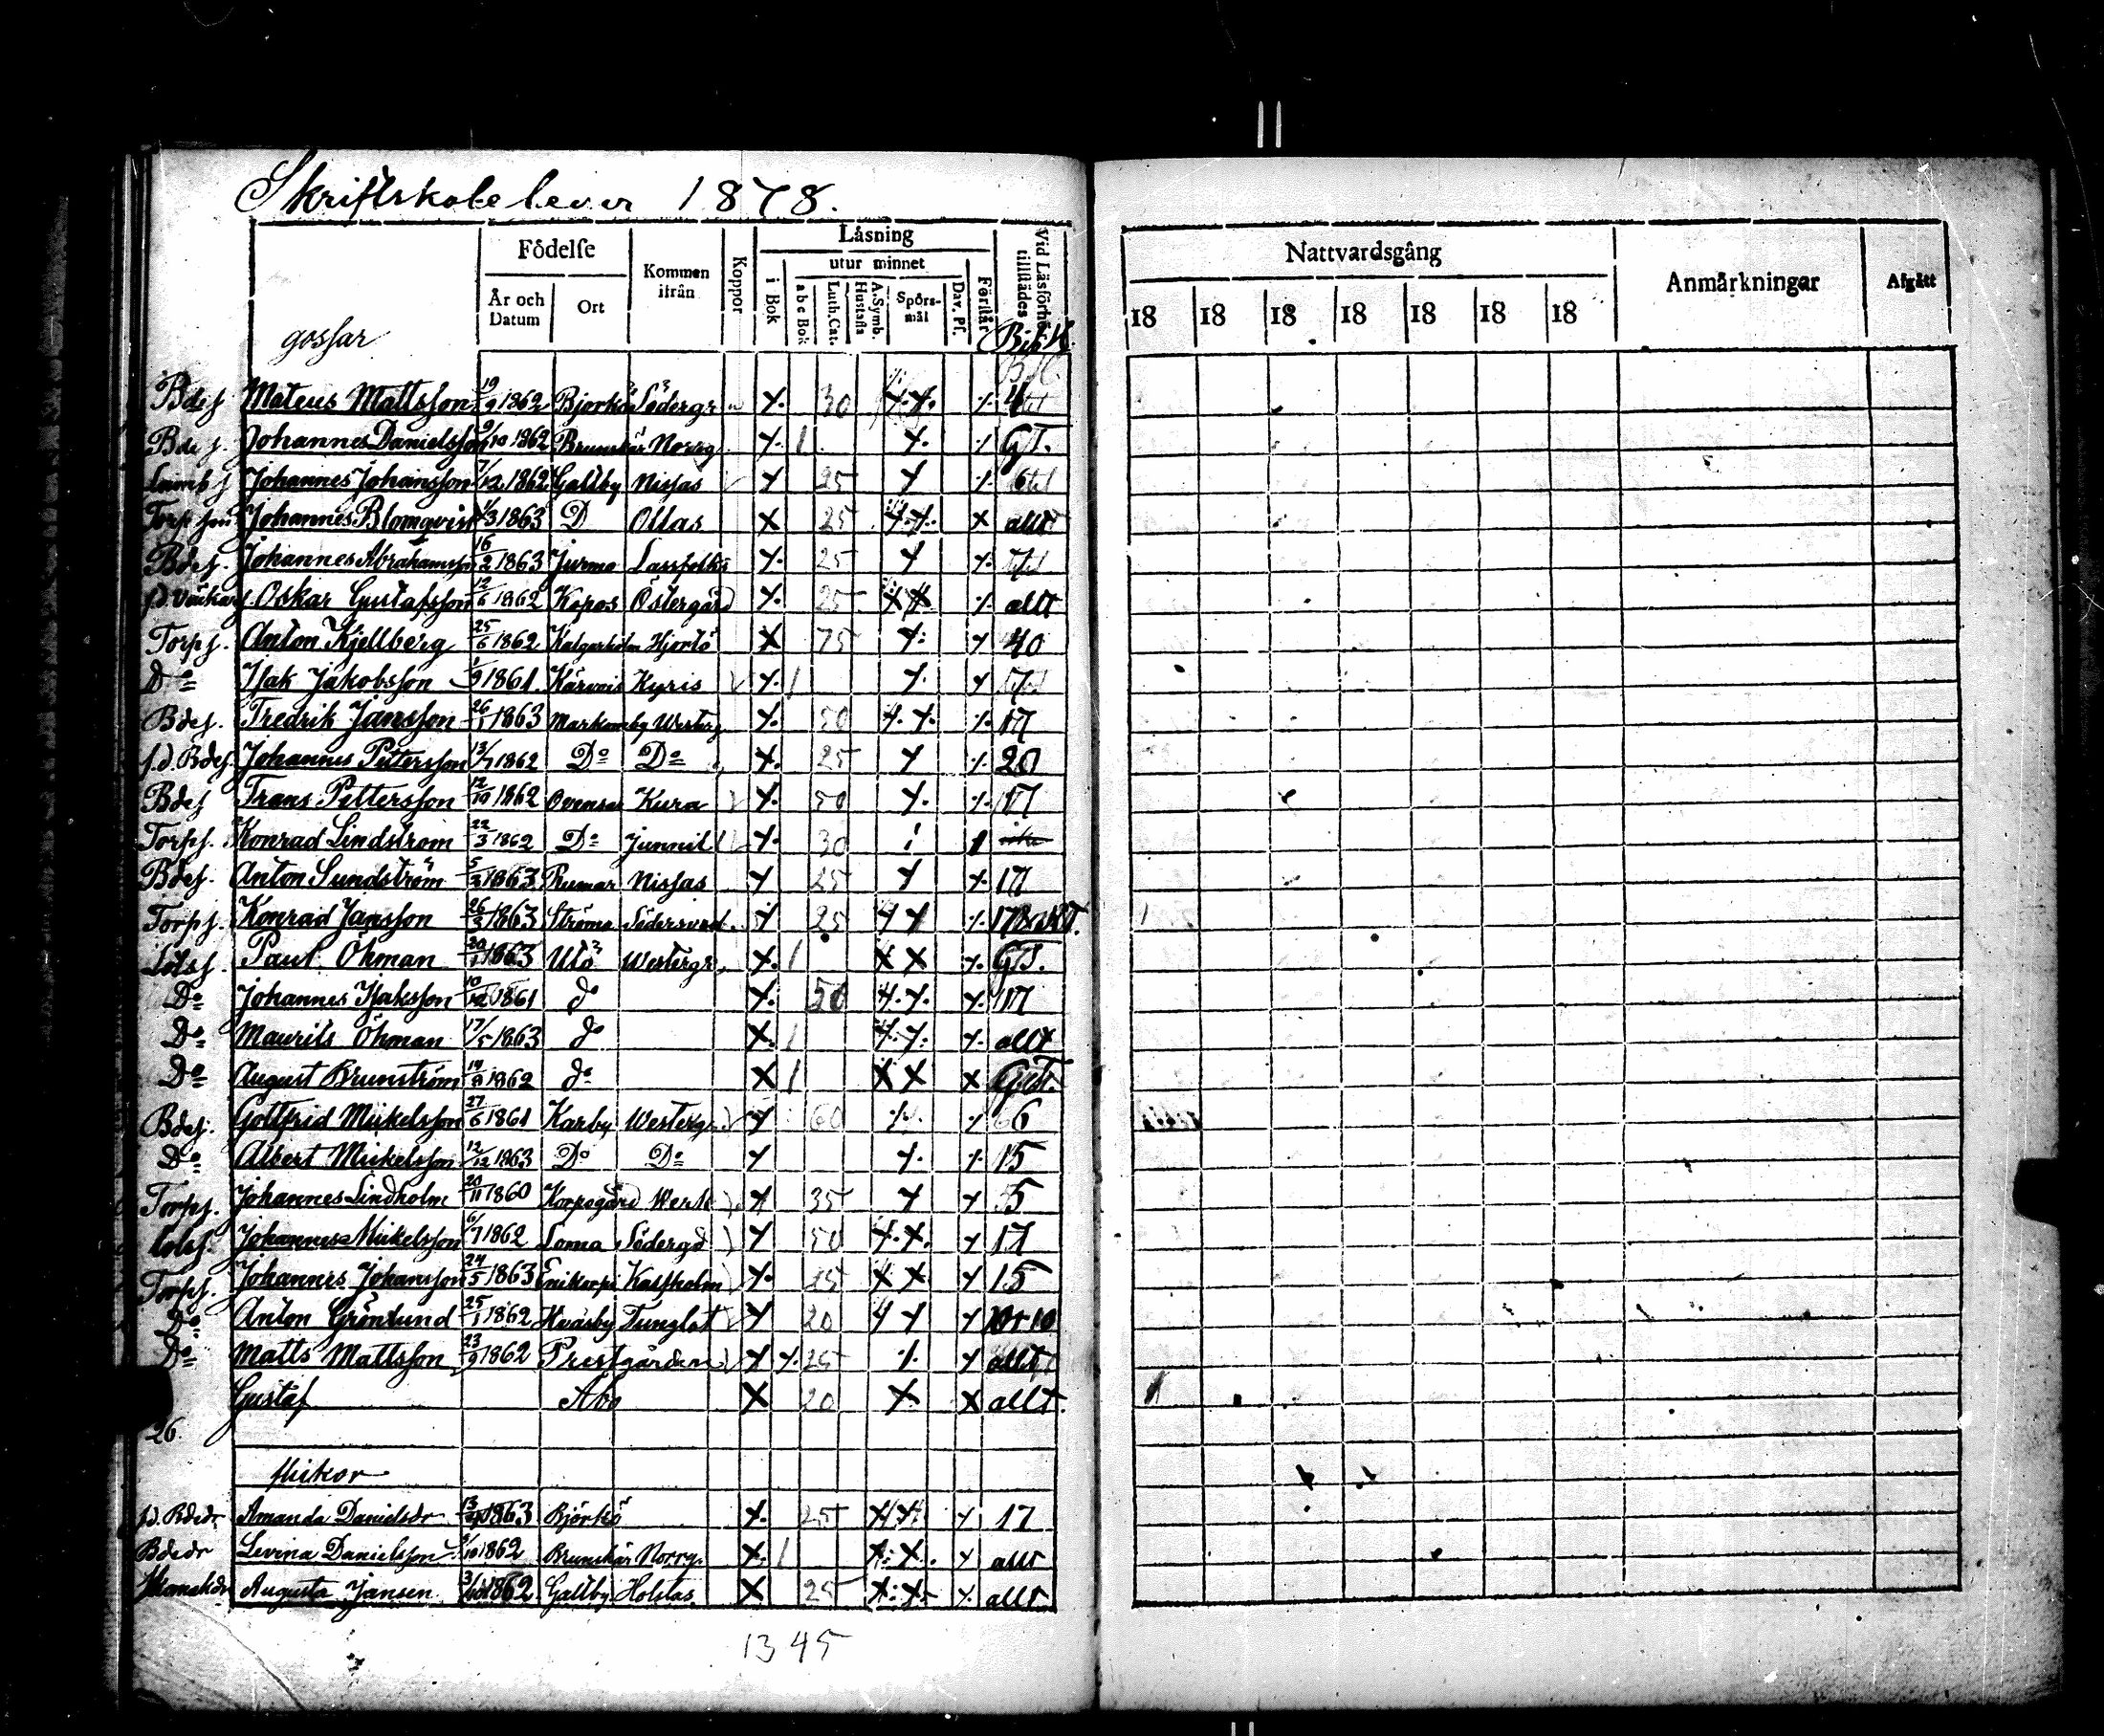 Skriftskolelever 1878.
Födelse
Läsning
Kommen ifrån
Koppor
utur minnet
År och Datum
Ort
i Bok
abc Bok
Luth. Cat.
A. Symb. Hustafla
Spörsmål
Dav. Ps.
Förstår
Vid Läsförhör tillstädes
Nattvardsgång
Anmärkningar
Afgått
18 18 18 18 18 18 18
gossar
Bdes Mateus Mattsson 19/9 1862 Björkö Södergr 30 4
Bdes. Johannes Danielsson 9/10 1862 Brunskär Norrg 1 GT.
Johannes Johansson 7/12 1862 Galtby Nissas 25 6
Johannes Blomqvist 1863 D Ollas 25 allt
Bdes. Johannes Abrahamsson 16/2 1863 Jurmo Lassfolks 25
Oskar Gustafsson 12/6 1862 Kopos Östergård 25 allt
Torps. Anton Kjellberg 25/6 1862 Hjortö 75 40
Do Isak Jakobsson 1861 Kärvois Kyris 1 17
Bdes. Fredrik Jansson 26/1 1863 Markomby Westerg 50 17
f.d. Bdes. Johannes Pettersson 13/7 1862 Do Do 25 20
Bdes Frans Pettersson 12/10 1862 Ovensor Kura 50 17
Torps. Konrad Lindström 22/3 1862 Do Junnil 30
Bdes. Anton Sundström 5/3 1863 Rumar Nissas 25 17
Torps. Konrad Jansson 26/3 1863 Ströma 25
Lotss. Paul Öhman 20/1 1863 Utö Westergr. 1 GT.
Do Johannes Isaksson 10/12 1861 do 50 17
Do Maurits Öhman 17/5 1863 do 1 allt
Do August Brunström 14/8 1862 do 1
Bdes. Gottfrid Mickelsson 27/6 1861 Karby Westerg. 60 6
Do Albert Mickelsson 12/12 1863 Do Do 15
Torps. Johannes Lindholm 20/11 1860 Korpogård 35 5
Lotss. Johannes Mickelsson 6/7 1862 Loma Södergd 50 17
Torps. Johannes Johansson 24/5 1863 25 15
Do Anton Grönlund 25/1 1862 Hväsby Tunglot 20
Do Matts Mattsson 23/9 1862 Prestgården 25 allt
Gustaf Åbo 20 allt.
26.
flickor
f.d. Bdedr Amanda Danielsdr 1863 Björkö 25 17
Bdedr Levina Danielsson 1862 Brunskär Norrg. 1 allt
Augusta Jansen 1862 Galtby Holstas 25 allt
1345